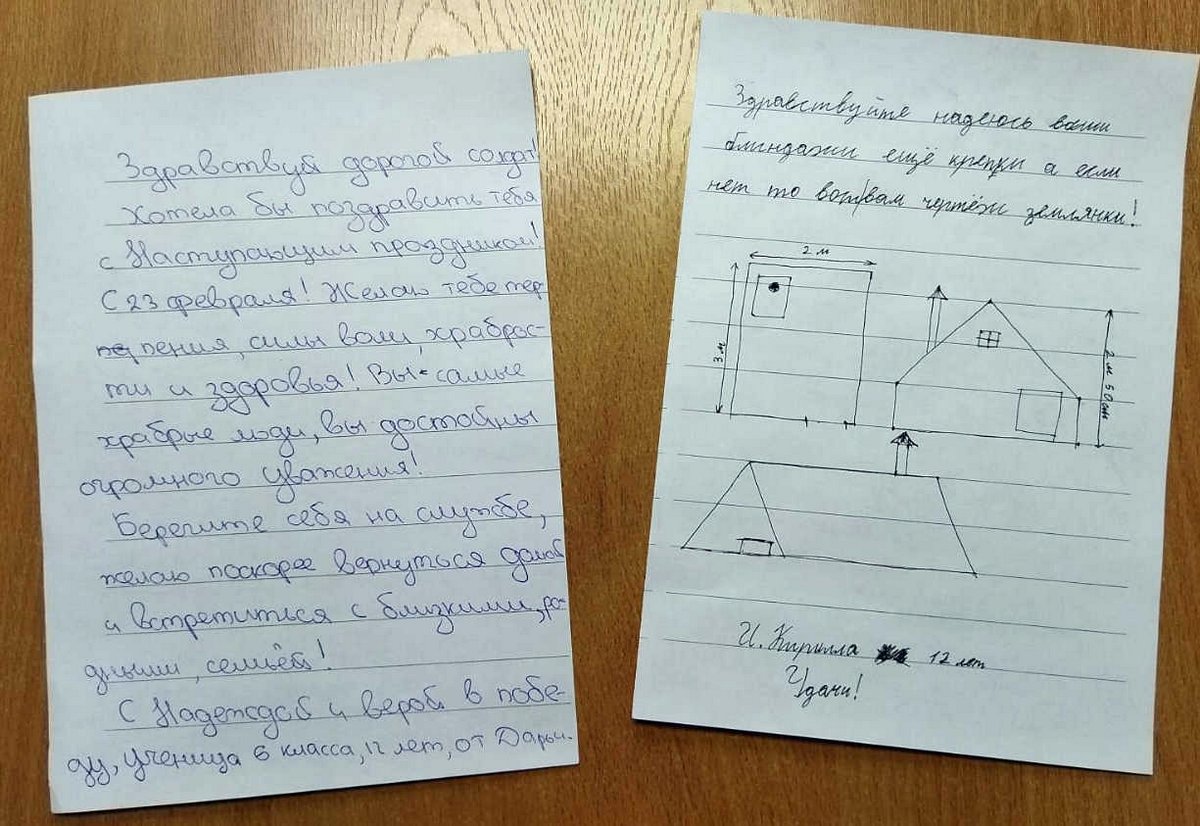 Здравствуй дорогой солдат!
Хотела бы поздравить тебя
с Наступающим праздником!
С 23 февраля! Желаю тебе тер-
пения, силы воли, храброс-
ти и здоровья! Вы-самые
храбрые люди, вы достойны
огромного уважения!
Берегите себя на службе,
желаю поскорее вернуться домой
и встретиться с близкими, ро-
дными, семьёй!
С Надеждой и верой в побе-
ду, ученица 6 класса, 12 лет, от Дарьи.
Здравствуйте надеюсь ваши
блиндажи ещё крепки а если
нет то вот вам чертёж землянки!
2 м
3 м
2 м 50 см
И. Кирилла 12 лет
Удачи!